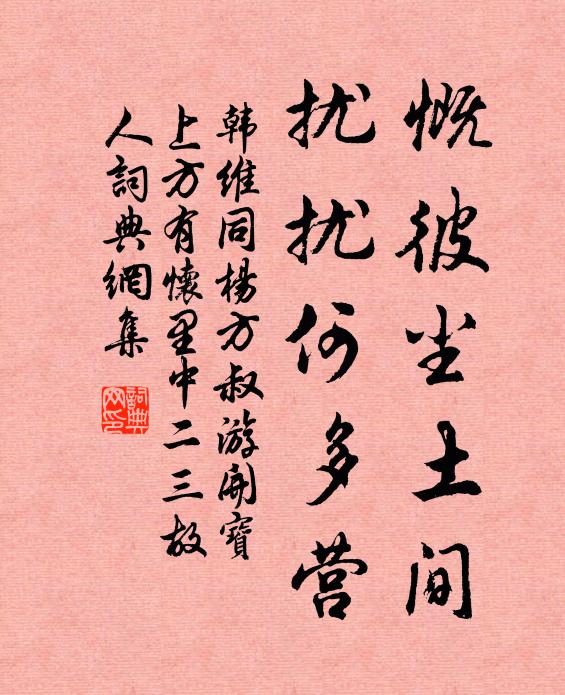 慨彼尘土间
扰扰何多营
韩维同楊方叔游開寶
上方有懷里中二三故
人詞典網集
詞典
网印